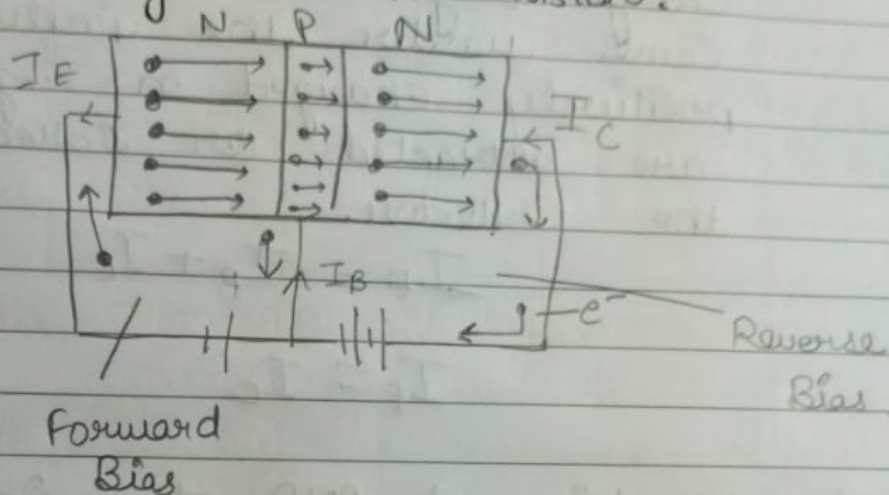 N P N
I E
I C
I B
e⁻
Reverse
Bias
Forward
Bias